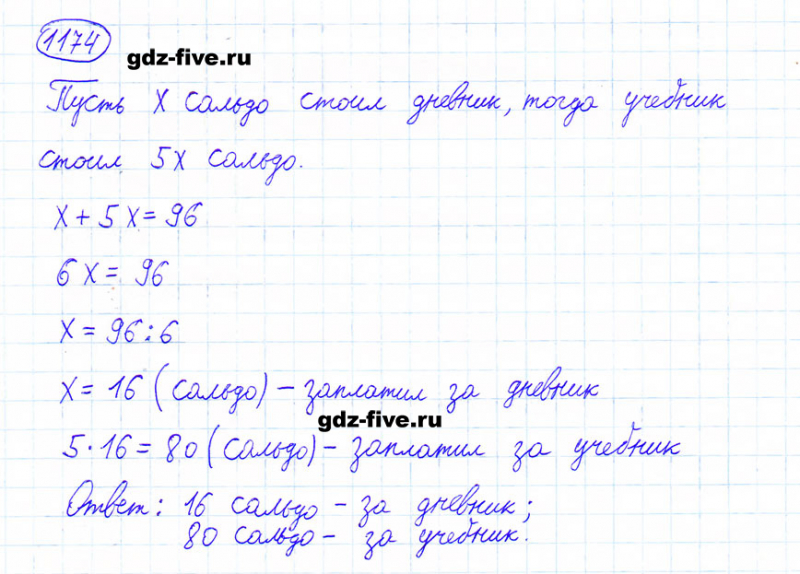 1174
gdz-five.ru
Пусть x сальдо стоил дневник, тогда учебник
стоил 5x сальдо.
x + 5x = 96
6x = 96
x = 96 : 6
x = 16 (сальдо) – заплатил за дневник
gdz-five.ru
5 · 16 = 80 (сальдо) – заплатил за учебник
Ответ: 16 сальдо – за дневник;
80 сальдо – за учебник.